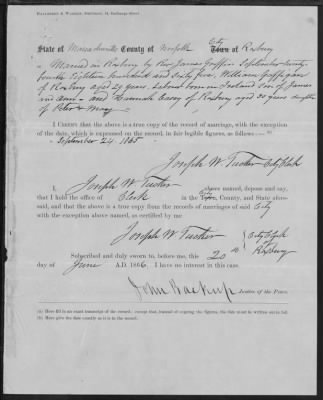 State of Massachusetts County of Norfolk City Town of Roxbury
Married in Roxbury by Rev James Griffin September twenty
fourth Eighteen hundred and sixty five, William Gaffigan
of Roxbury aged 29 years, Laborer born in Ireland son of James
and Ann & Hannah Casey of Roxbury aged 30 years daughter
of Peter & Mary
I Certify that the above is a true copy of the record of marriage, with the exception
of the date, which is expressed on the record, in fair legible figures, as follows :— (b)
September 24 1865
Joseph W Tucker City Clerk
I, Joseph W Tucker above named, depose and say,
that I hold the office of Clerk in the City, County, and State afore-
said, and that the above is a true copy from the records of marriages of said City
with the exception above named, as certified by me
Joseph W Tucker City Clerk
of Roxbury
Subscribed and duly sworn to, before me, this 20th
day of June A.D. 1866 I have no interest in this case.
Justice of the Peace.
(a) Here fill in an exact transcript of the record, except that, instead of copying the figures, the date must be written out in full
(b) Here give the date exactly as it is in the record.